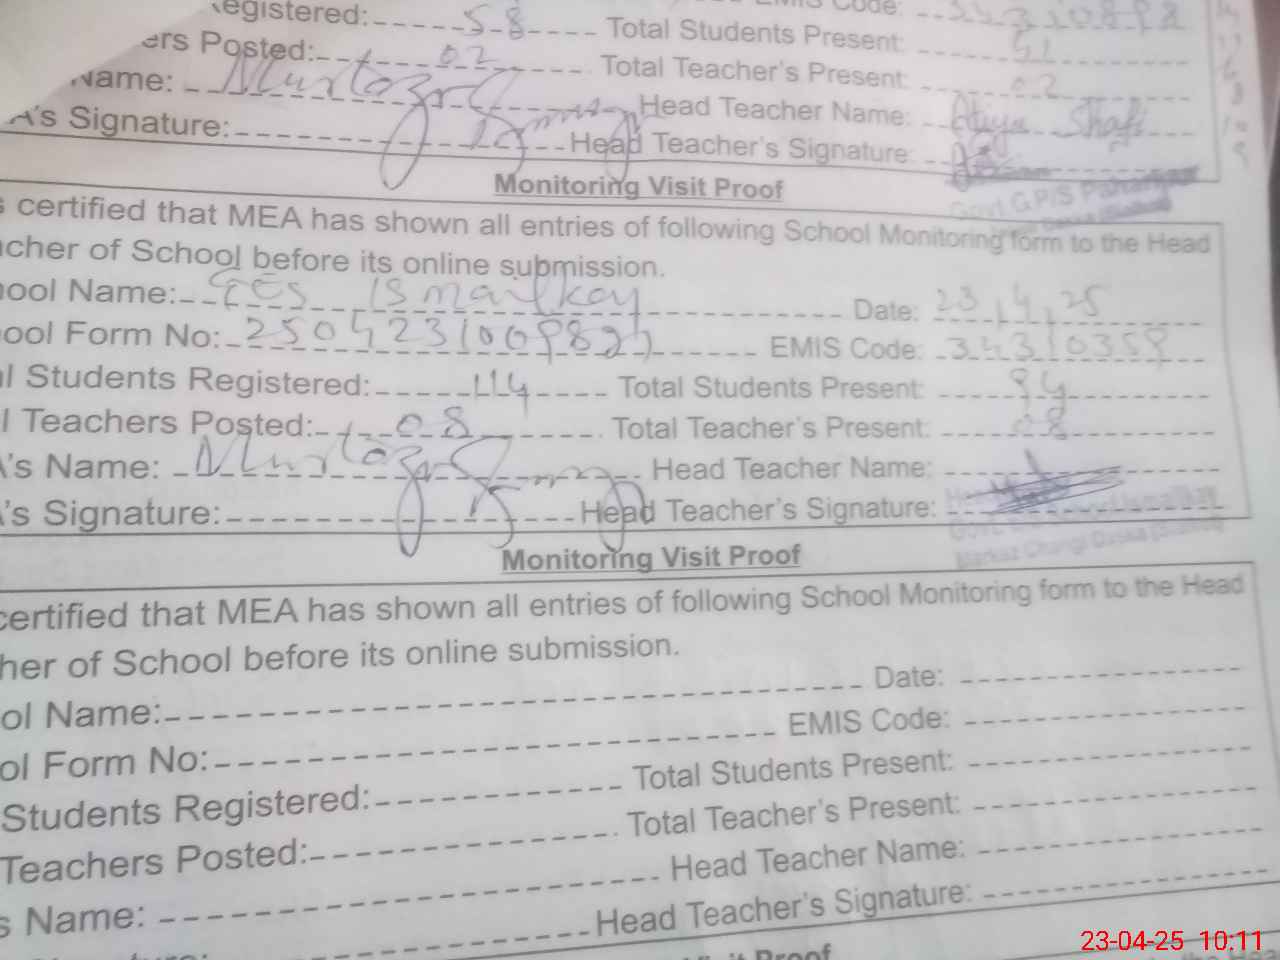 egistered: 58 Total Students Present: 51
ers Posted: 02 Total Teacher's Present: 02
Name: Murtaza Head Teacher Name: Atiya Shafi
A's Signature: Head Teacher's Signature:
Monitoring Visit Proof
s certified that MEA has shown all entries of following School Monitoring form to the Head
cher of School before its online submission.
ool Name: GES Ismailkay Date: 23,4,25
ool Form No: EMIS Code: 34310359
l Students Registered: 114 Total Students Present: 94
l Teachers Posted: 08 Total Teacher's Present: 08
's Name: Murtaza Head Teacher Name:
's Signature: Head Teacher's Signature:
Monitoring Visit Proof
certified that MEA has shown all entries of following School Monitoring form to the Head
her of School before its online submission.
ol Name: Date:
ol Form No: EMIS Code:
Students Registered: Total Students Present:
Teachers Posted: Total Teacher's Present:
s Name: Head Teacher Name:
Head Teacher's Signature:
23-04-25 10:11